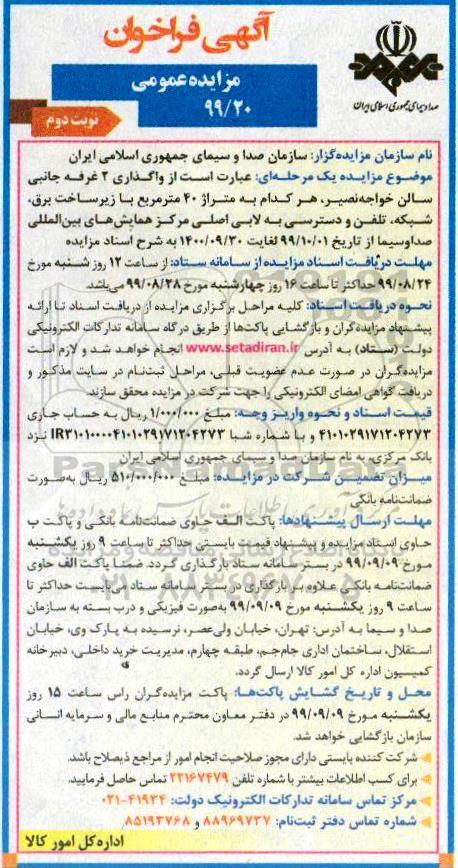 آگهی فراخوان
مزایده عمومی
۹۹/۲۰
نوبت دوم
صدا و سیمای جمهوری اسلامی ایران
نام سازمان مزایده‌گزار: سازمان صدا و سیمای جمهوری اسلامی ایران
موضوع مزایده یک مرحله‌ای: عبارت است از واگذاری ۲ غرفه جانبی
سالن خواجه‌نصیر، هر کدام به متراژ ۴۰ مترمربع با زیرساخت برق،
شبکه، تلفن و دسترسی به لابی اصلی مرکز همایش‌های بین‌المللی
صداوسیما از تاریخ ۹۹/۱۰/۰۱ لغایت ۱۴۰۰/۰۹/۳۰ به شرح اسناد مزایده
مهلت دریافت اسناد مزایده از سامانه ستاد: از ساعت ۱۲ روز شنبه مورخ
۹۹/۰۸/۲۴ حداکثر تا ساعت ۱۶ روز چهارشنبه مورخ ۹۹/۰۸/۲۸ می‌باشد.
نحوه دریافت اسناد: کلیه مراحل برگزاری مزایده از دریافت اسناد تا ارائه
پیشنهاد مزایده‌گران و بازگشایی پاکت‌ها از طریق درگاه سامانه تدارکات الکترونیکی
دولت (ستاد) به آدرس www.setadiran.ir انجام خواهد شد و لازم است
مزایده‌گران در صورت عدم عضویت قبلی، مراحل ثبت‌نام در سایت مذکور و
دریافت گواهی امضای الکترونیکی را جهت شرکت در مزایده محقق سازند.
قیمت اسناد و نحوه واریز وجه: مبلغ ۱/۰۰۰/۰۰۰ ریال به حساب جاری
۴۱۰۱۰۲۹۱۷۱۲۰۴۲۷۳ و با شماره شبا IR۳۱۰۱۰۰۰۰۴۱۰۱۰۲۹۱۷۱۲۰۴۲۷۳ نزد
بانک مرکزی، به نام سازمان صدا و سیمای جمهوری اسلامی ایران
میزان تضمین شرکت در مزایده: مبلغ ۵۱۰/۰۰۰/۰۰۰ ریال به‌صورت
ضمانت‌نامه بانکی
مهلت ارسال پیشنهادها: پاکت الف حاوی ضمانت‌نامه بانکی و پاکت ب
حاوی اسناد مزایده و پیشنهاد قیمت بایستی حداکثر تا ساعت ۹ روز یکشنبه
مورخ ۹۹/۰۹/۰۹ در بستر سامانه ستاد بارگذاری گردد. ضمنا پاکت الف حاوی
ضمانت‌نامه بانکی علاوه بر بارگذاری در بستر سامانه ستاد می‌بایست حداکثر تا
ساعت ۹ روز یکشنبه مورخ ۹۹/۰۹/۰۹ به‌صورت فیزیکی و درب بسته به سازمان
صدا و سیما به آدرس: تهران، خیابان ولی‌عصر، نرسیده به پارک وی، خیابان
استقلال، ساختمان اداری جام‌جم، طبقه چهارم، مدیریت خرید داخلی، دبیرخانه
کمیسیون اداره کل امور کالا ارسال گردد.
محل و تاریخ گشایش پاکت‌ها: پاکت مزایده‌گران راس ساعت ۱۵ روز
یکشنبه مورخ ۹۹/۰۹/۰۹ در دفتر معاون محترم منابع مالی و سرمایه انسانی
سازمان بازگشایی خواهد شد.
شرکت کننده بایستی دارای مجوز صلاحیت انجام امور از مراجع ذیصلاح باشد.
برای کسب اطلاعات بیشتر با شماره تلفن ۲۲۱۶۷۴۷۹ تماس حاصل فرمایید.
مرکز تماس سامانه تدارکات الکترونیک دولت: ۴۱۹۳۴-۰۲۱
شماره تماس دفتر ثبت‌نام: ۸۸۹۶۹۷۳۷ و ۸۵۱۹۳۷۶۸
اداره کل امور کالا